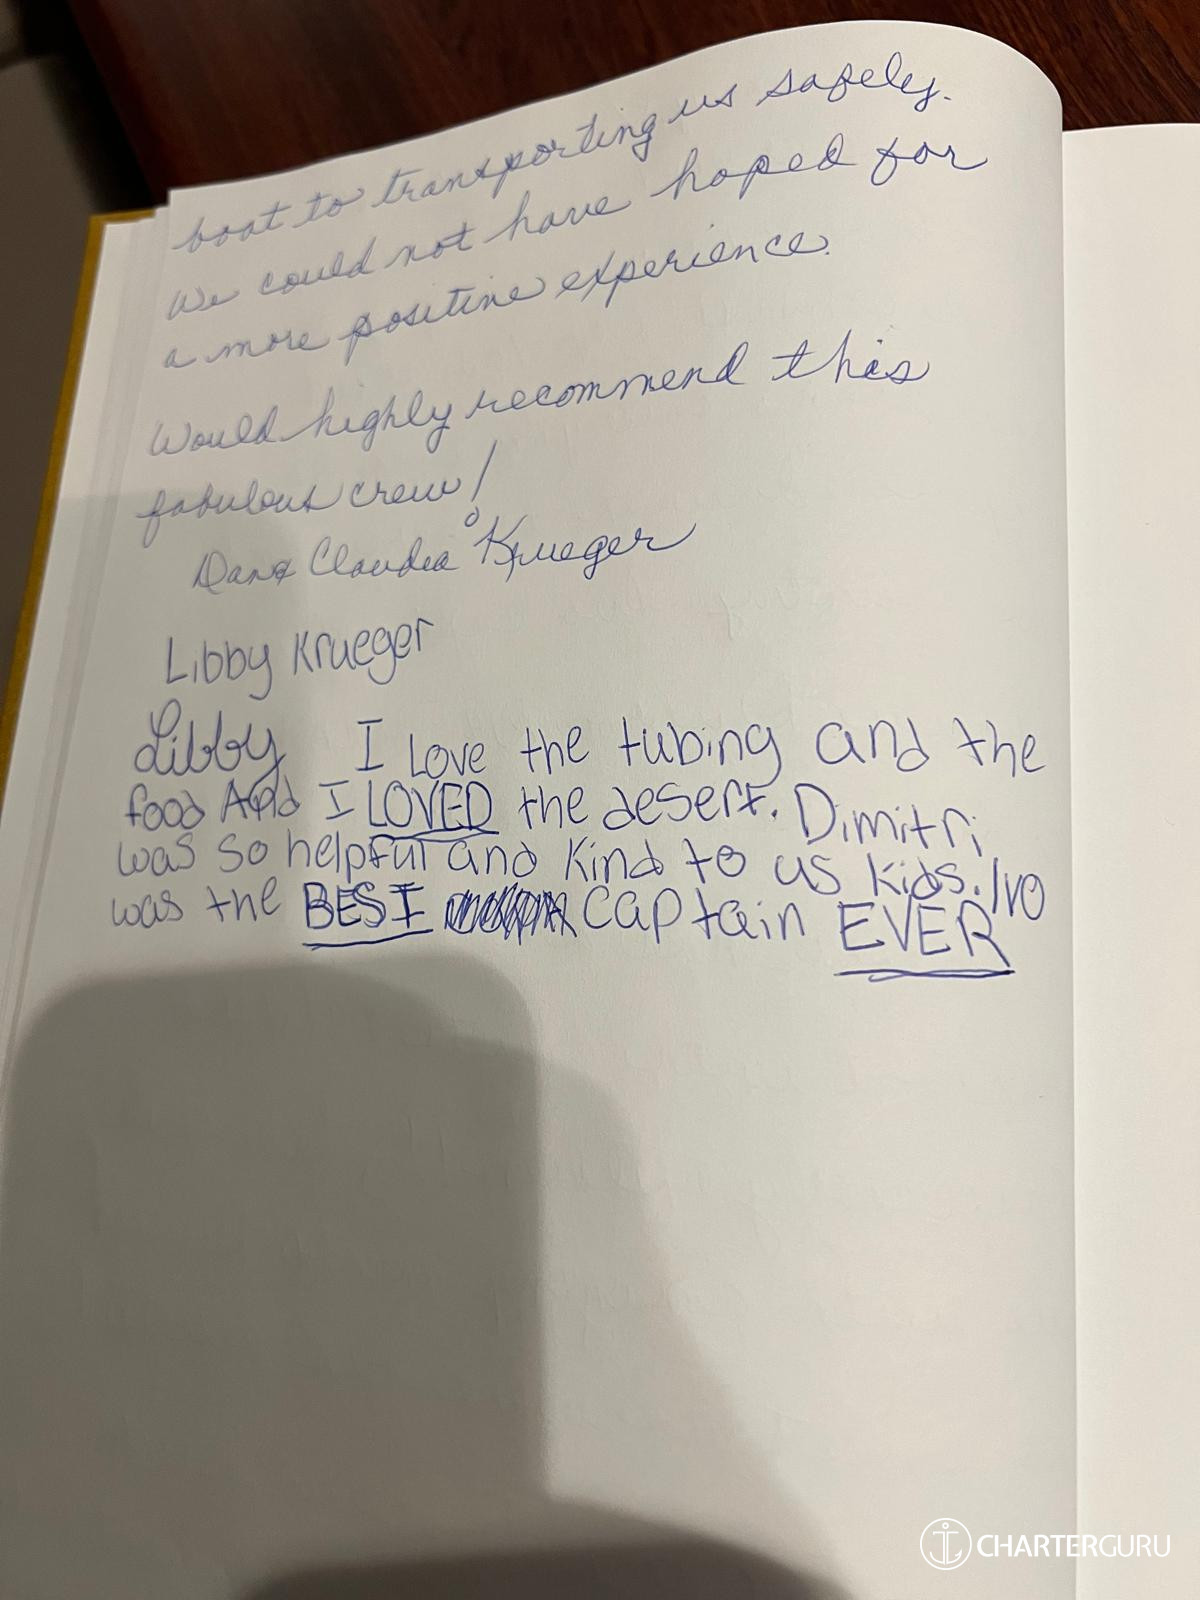 boat to transporting us safely.
We could not have hoped for
a more positive experience.
Would highly recommend this
fabulous crew!
Dan & Claudia Krueger
Libby Krueger
Libby I Love the tubing and the
food And I LOVED the desert. Dimitri
was so helpful and kind to us kids. Ivo
was the BEST captain EVER
CHARTERGURU